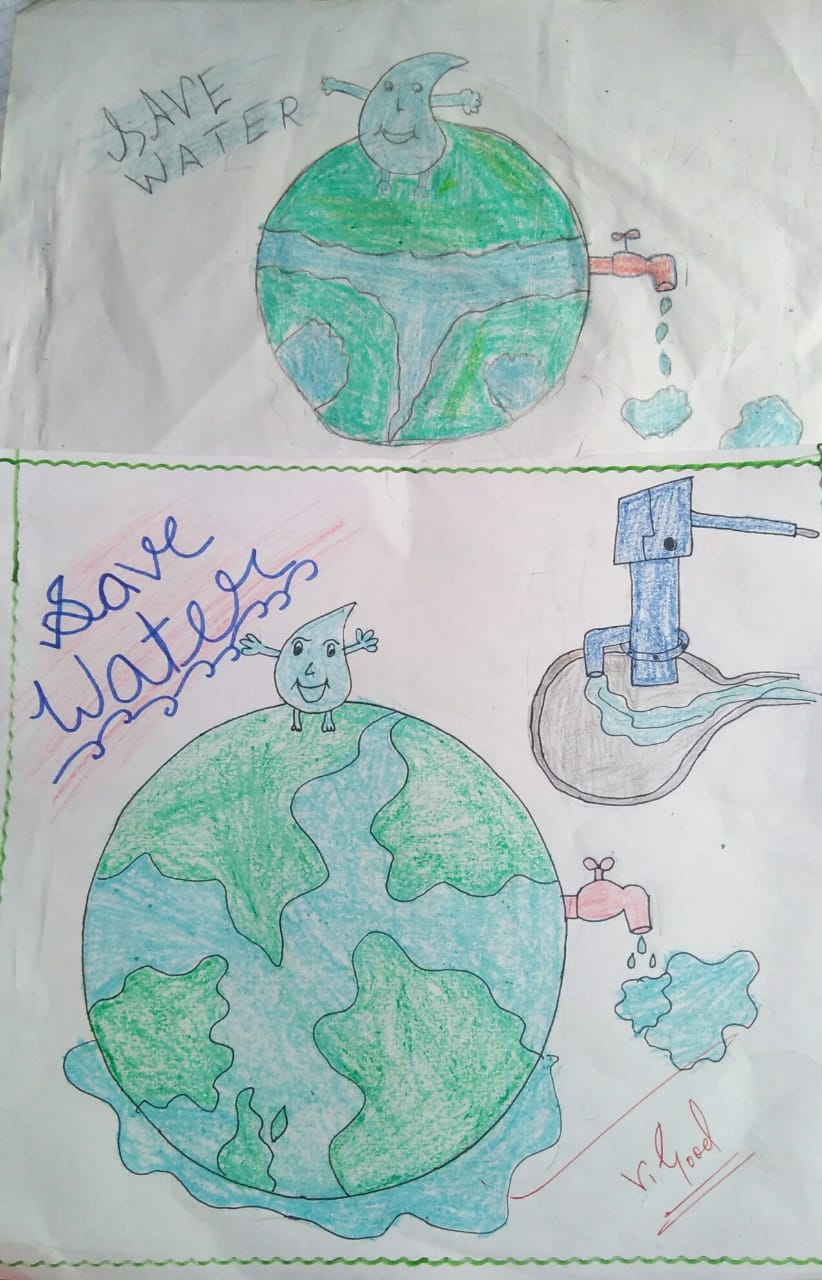 SAVE
WATER
Save
Water
V. Good